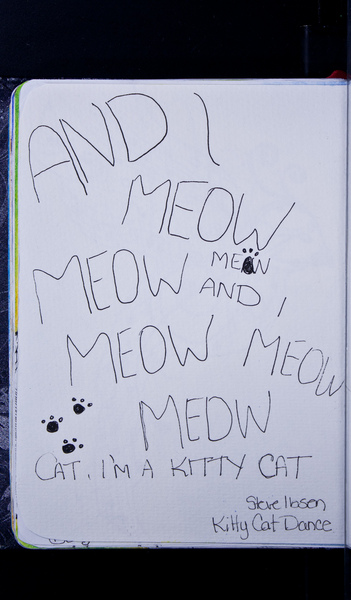 AND I
MEOW
MEOW MEOW
AND I
MEOW MEOW
MEOW
CAT. I'M A KITTY CAT
Steve Ibsen
Kitty Cat Dance